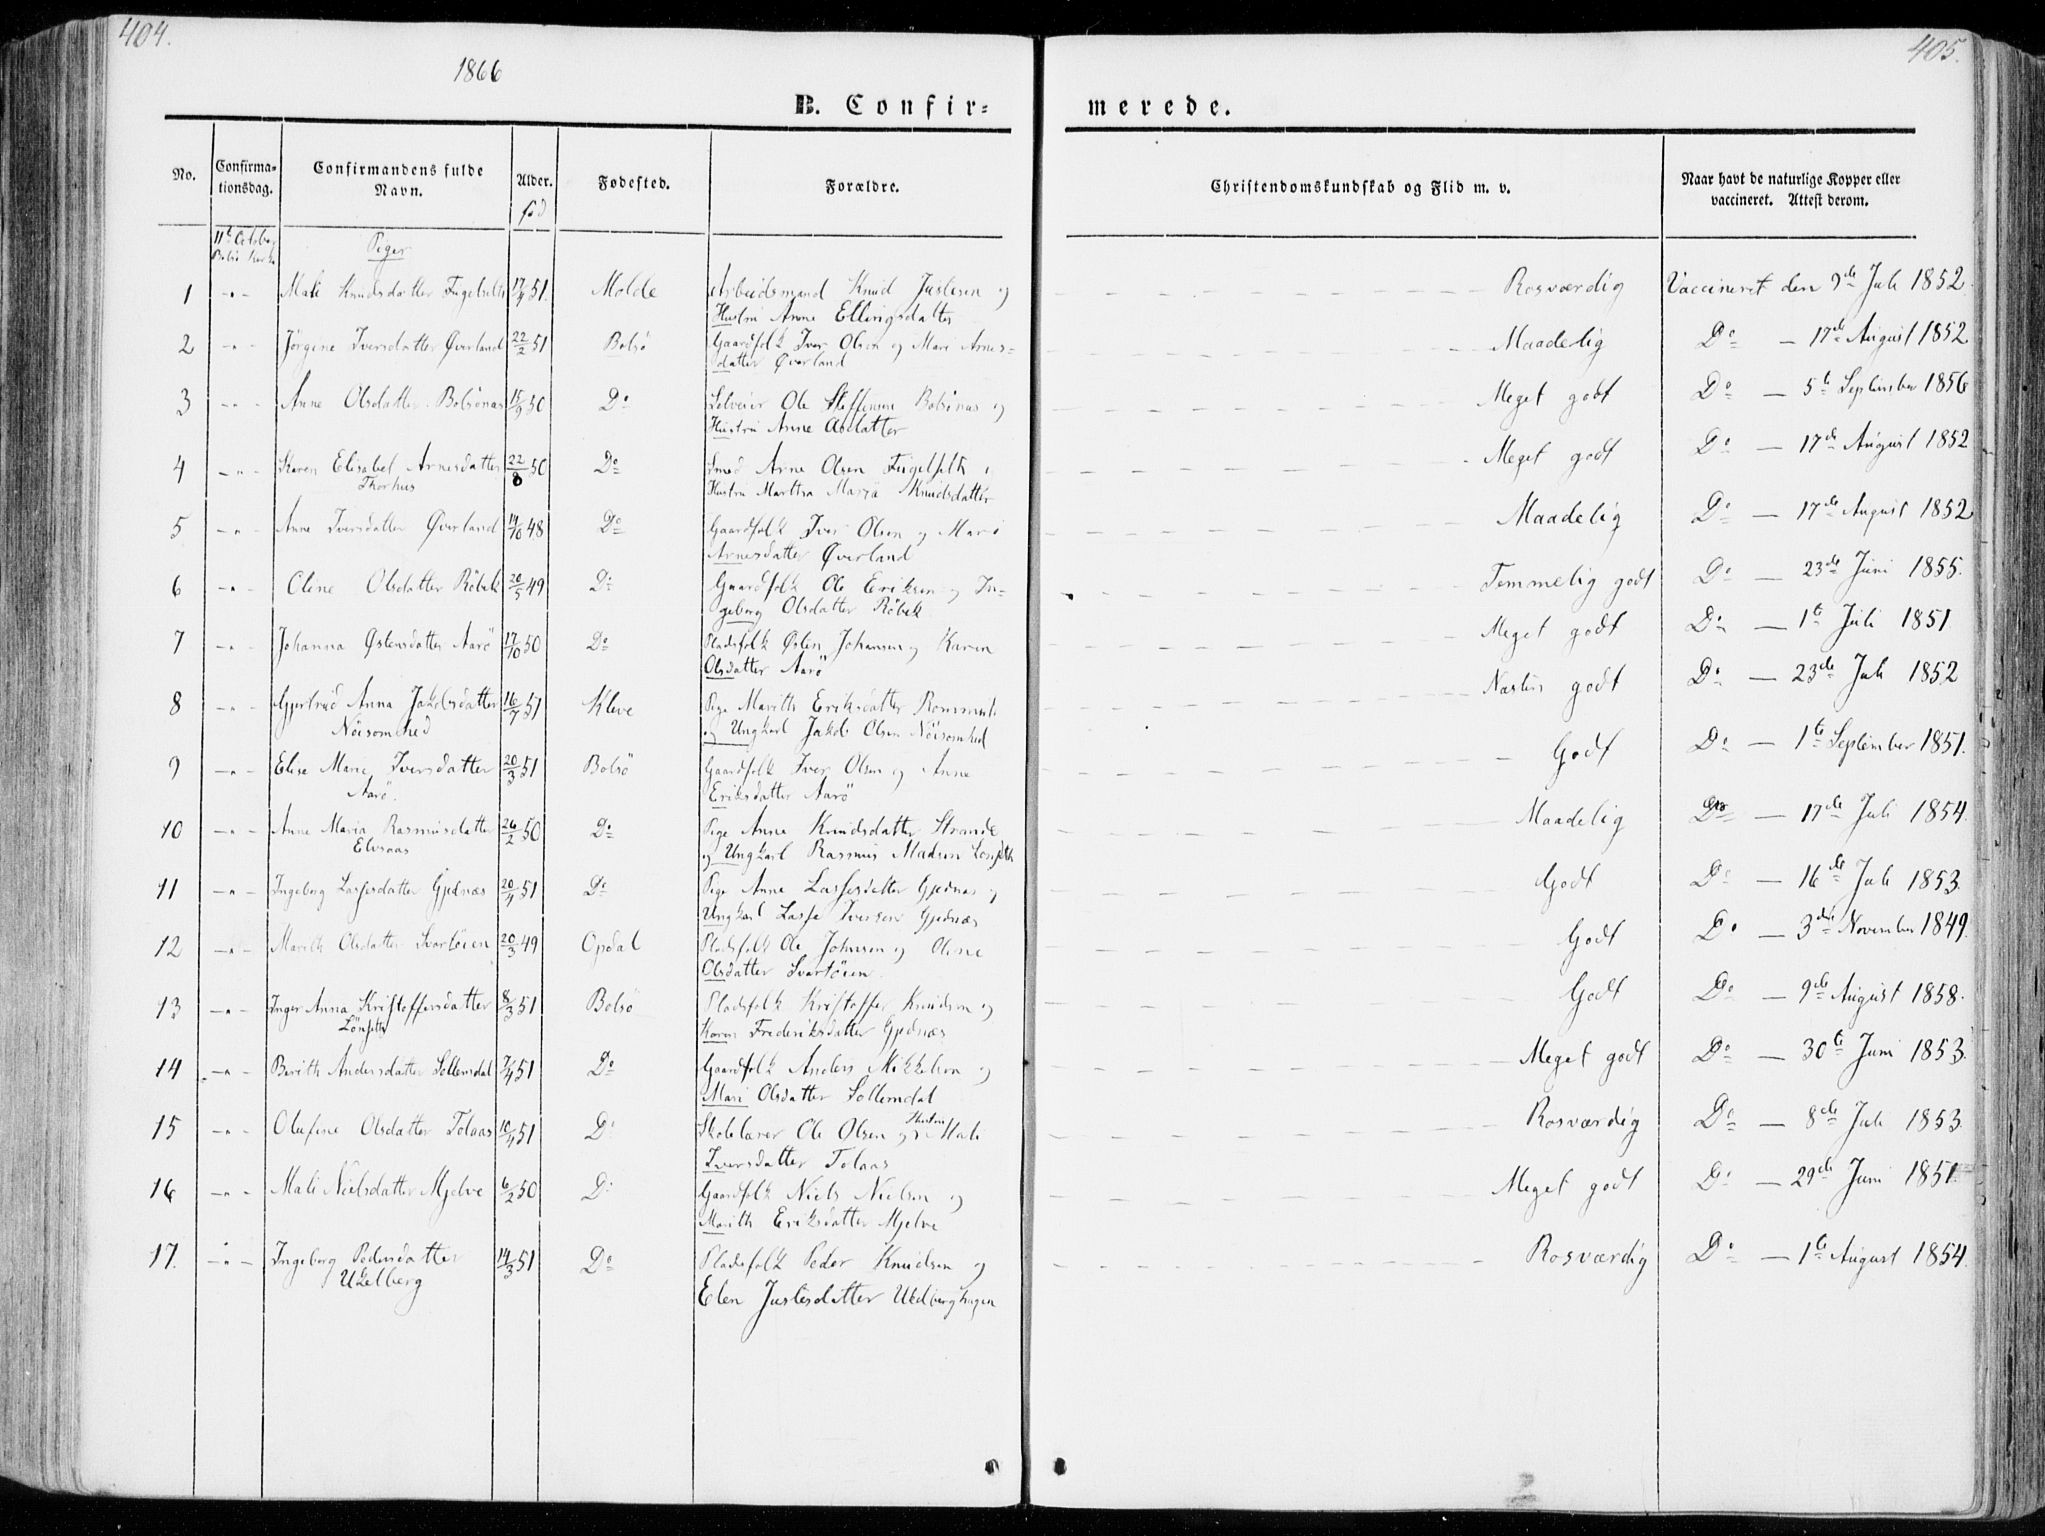 404.
405.
1866
B. Confir-
merede.
No.
Confirma-
tionsdag.
Confirmandens fulde
Navn.
Alder.
Fødested.
Forældre.
Christendomskundskab og Flid m. v.
Naar havt de naturlige Kopper eller
vaccineret. Attest derom.
Piger
1 Mali Knudsdatter 17/4 51. Molde Arbeidsmand Knud Justesen og Rosværdig Vaccineret den 9de Juli 1852
Hustru Anne Ellingsdatter
2 Jørgine Iversdatter Øverland 22/2 51 Bolsö Gaardfolk Iver Olsen og Mari Arnes- Maadelig Do 17de August 1852
datter Øverland
3 Anne Olsdatter Bolsönas 15/9 50 Do Ole Steffensen Bolsönas og Meget godt Do 5te September 1856
Hustru Anne
4 Karen Elisabet Arnesdatter 22/8 50 Do Smed Arne Olsen Meget godt Do 17de August 1852
Thorhus Hustru Martha Maria Knudsdatter
5 Anne Iversdatter Øverland 14/10 48 Do Gaardfolk Iver Olsen og Mari Maadelig Do 17de August 1852
Arnesdatter Øverland
6 Oline Olsdatter Röbek 20/5 49 Do Gaardfolk Ole Eriksen og In- Temmelig godt Do 23de Juni 1855.
geborg Olsdatter Röbek
7 Johanna Østensdatter Aarö 17/10 50 Do Pladsfolk Østen Johansen og Karen Meget godt Do 1te Juli 1851
Olsdatter Aarö
8 Gjertrud Anna Jakobsdatter 16/7 51 Kleve Pige Marith Eriksdatter Næsten godt Do 23de Juli 1852
Nöisomhed og Ungkarl Jakob Olsen Nöisomhed
9 Elise Marie Iversdatter 20/3 51 Bolsö Gaardfolk Iver Olsen og Anne Godt Do 1te September 1851.
Aarö. Eriksdatter Aarö
10 Anne Maria Rasmusdatter 26/2 50 Do Pige Anne Knudsdatter Strande Maadelig Do 17de Juli 1854.
Elvsaas og Ungkarl Rasmus Madsen
11 Ingeborg Lassesdatter Gjednæs 20/4 51 Do Pige Anne Lassesdatter Gjednæs og Godt Do 16de Juli 1853.
Ungkarl Lasse Iversen Gjednæs
12 Marith Olsdatter Svartöien 20/3 49 Opdal Pladsfolk Ole Johnsen og Oline Godt Do 3die November 1849.
Olsdatter Svartöien
13 Inger Anna Kristoffersdatter 8/3 51 Bolsö Pladsfolk Kristoffer Knudsen og Godt Do 9de August 1858.
Lönsetter Karen Frederiksdatter Gjednæs
14 Berith Andersdatter Sollemdal 7/4 51 Do Gaardfolk Anders Mikkelsen og Meget godt Do 30te Juni 1853.
Mari Olsdatter Sollemdal
15 Olufine Olsdatter Tolaas 10/4 51 Do Skolelærer Ole Olsen og Hustru Mali Rosværdig Do 8de Juli 1853.
Iversdatter Tolaas
16 Mali Nielsdatter Mjelve 6/2 50 Do Gaardfolk Niels Nielsen og Meget godt Do 29de Juni 1851.
Marith Eriksdatter Mjelve
17. Ingeborg Pedersdatter 14/3 51 Do Pladsfolk Peder Knudsen og Rosværdig Do 1te August 1854.
Elen Justesdatter